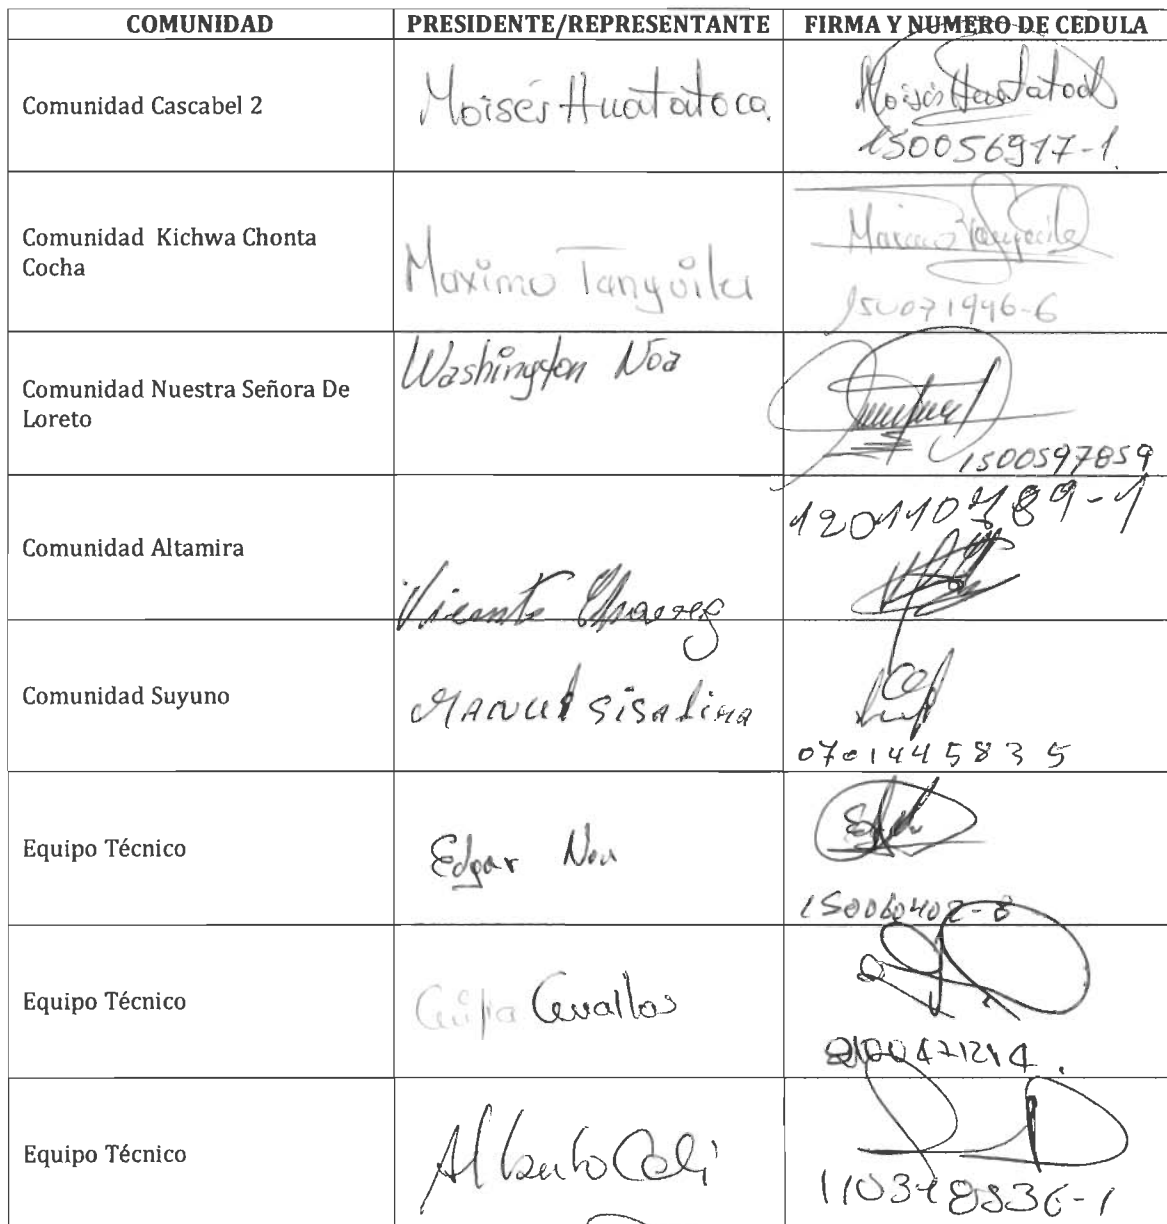 COMUNIDAD PRESIDENTE/REPRESENTANTE FIRMA Y NUMERO DE CEDULA
Comunidad Cascabel 2 Moisés Huatatoca Moisés Huatatoca
150056917-1
Comunidad Kichwa Chonta
Cocha Maximo Tanguila
150071946-6
Comunidad Nuestra Señora De
Loreto Washington Noa
1500597859
Comunidad Altamira Vicente Chavez
Comunidad Suyuno Manuel Sisalima
0701445835
Equipo Técnico Edgar Noa
150060402-8
Equipo Técnico Cevallos
Equipo Técnico Alberto Celi